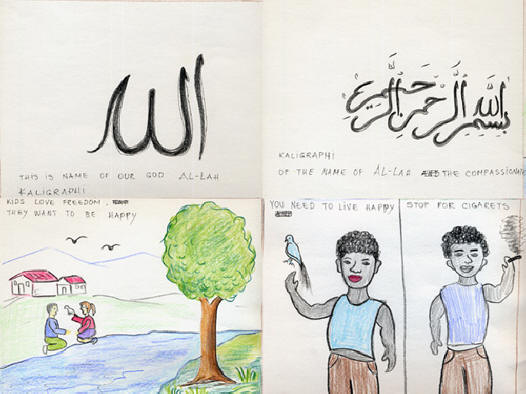 الله
THIS IS NAME OF OUR GOD AL-LAH
KALIGRAPHI
بسم الله الرحمن الرحيم
KALIGRAPHI
OF THE NAME OF AL-LAH THE COMPASSIONATE
KIDS LOVE FREEDOM,
THEY WANT TO BE HAPPY
YOU NEED TO LIVE HAPPY
STOP FOR CIGARETS